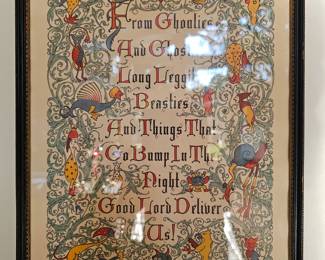 From Ghoulies
And Ghosties
Long Leggity
Beasties
And Things That
Go Bump In The
Night
Good Lord Deliver
Us!